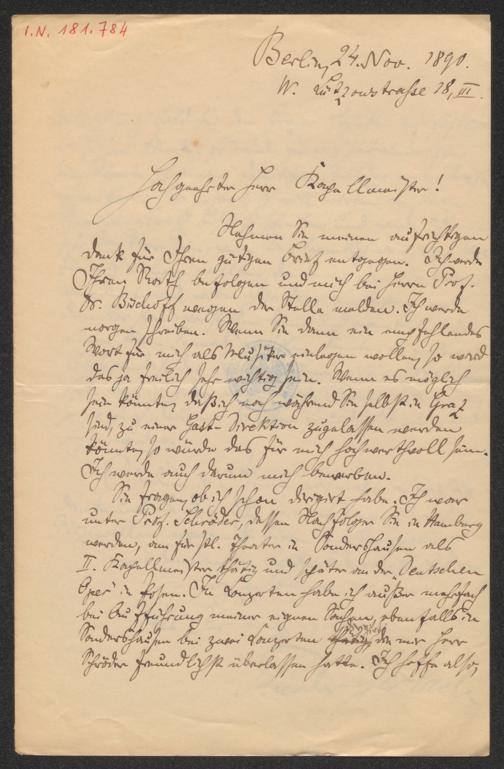 I.N. 181.784
Berlin, 24. Nov. 1890.
W. Lützowstrasse 18, III.
Hochgeehrter Herr Kapellmeister!
Nehmen Sie meinen aufrichtigen
Dank für Ihren gütigen Brief entgegen. Ich werde
Ihren Rath befolgen und mich bei Herrn Prof.
Dr. Bischoff wegen der Stelle melden. Ich werde
morgen schreiben. Wenn Sie dann ein empfehlendes
Wort für mich als Musiker einlegen wollen, so wird
das ja freilich sehr wichtig sein. Wenn es möglich
sein könnte, daß ich noch während Sie selbst in Graz
sind, zu einer Gast-Direktion zugelassen werden
könnte, so würde das für mich hochwerthvoll sein.
Ich werde auch darum mich bewerben.
Sie fragen, ob ich schon dirigirt habe. Ich war
unter Prof. Schröder, dessen Nachfolger Sie in Hamburg
werden, am fürstl. Theater in Sondershausen als
II. Kapellmeister thätig und später an der Deutschen
Oper in Posen. In Conzerten habe ich außer mehrfach
bei Aufführung meiner eignen Sachen, ebenfalls in
Sondershausen bei zwei Conzerten die mir Herr
Schröder freundlichst überlassen hatte. Ich hoffe also,